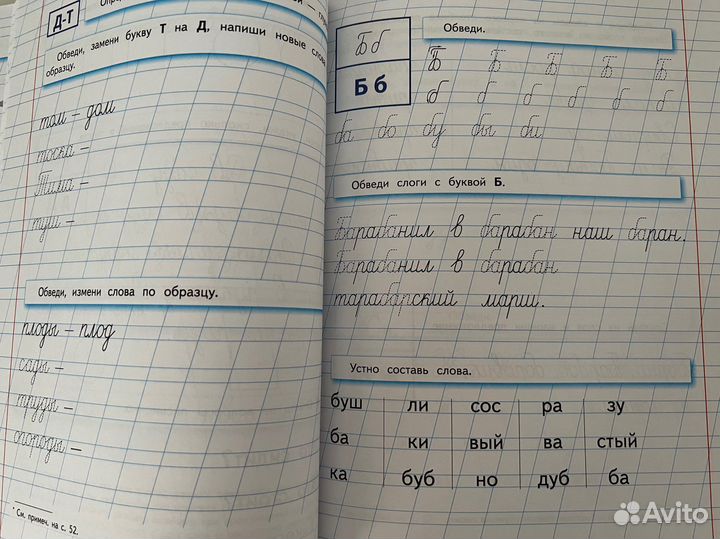 Д-Т
Обведи, замени букву Т на Д, напиши новые слова
образцу.
том – дом
тоска –
Тима –
туш –
Обведи, измени слова по образцу.
плоды – плод
сады –
труды –
огороды –
* См. примеч. на с. 52.
Б б
Б б
Обведи.
Б Б Б Б Б
б б б б б б
ба бо бу бы би
Обведи слоги с буквой Б.
Барабанил в барабан наш баран.
Барабанил в барабан
тарабарский марш.
Устно составь слова.
буш ли сос ра зу
ба ки вый ва стый
ка буб но дуб ба
Avito